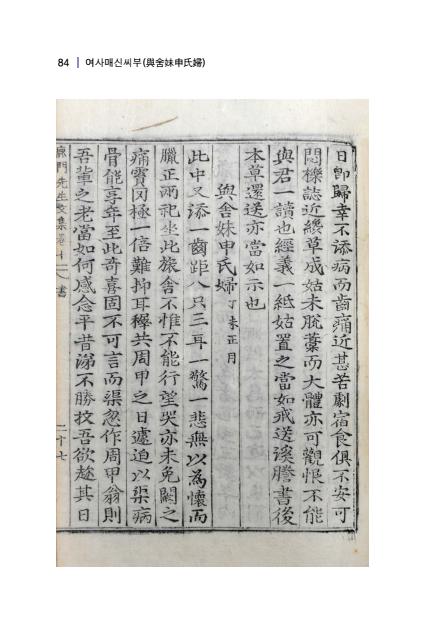 84 | 여사매신씨부(與舍妹申氏婦)
日卽歸幸不添病而齒痛近甚苦劇宿食俱不安可
悶櫟誌近纔草成姑未脫藁而大體亦可觀恨不能
與君一讀也經義一紙姑置之當如戒送謄書後
本草還送亦當如示也
與舍妹申氏婦 丁未正月
此中又添一齒距八只三耳一驚一悲無以為懷而
臘正兩祀坐此旅舍不惟不能行望哭亦未免闕之
痛寶罔極一倍難抑耳稺共周甲之日遽迫以渠病
骨能享年至此奇喜固不可言而渠忽作周甲翁則
吾輩之老當如何感念平昔涕不勝抆吾欲趂其日
鹿門先生文集卷十二 書 二十七